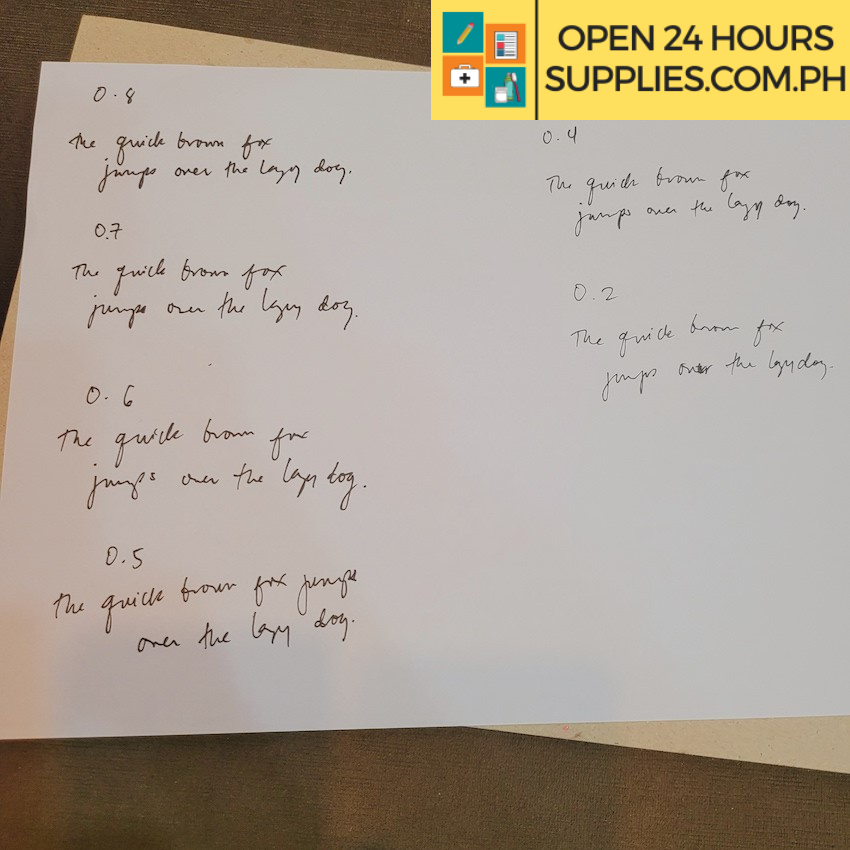 OPEN 24 HOURS
SUPPLIES.COM.PH
0.8
The quick brown fox
jumps over the lazy dog.
0.7
The quick brown fox
jumps over the lazy dog.
0.6
The quick brown fox
jumps over the lazy dog.
0.5
The quick brown fox jumps
over the lazy dog.
0.4
The quick brown fox
jumps over the lazy dog.
0.2
The quick brown fox
jumps over the lazy dog.